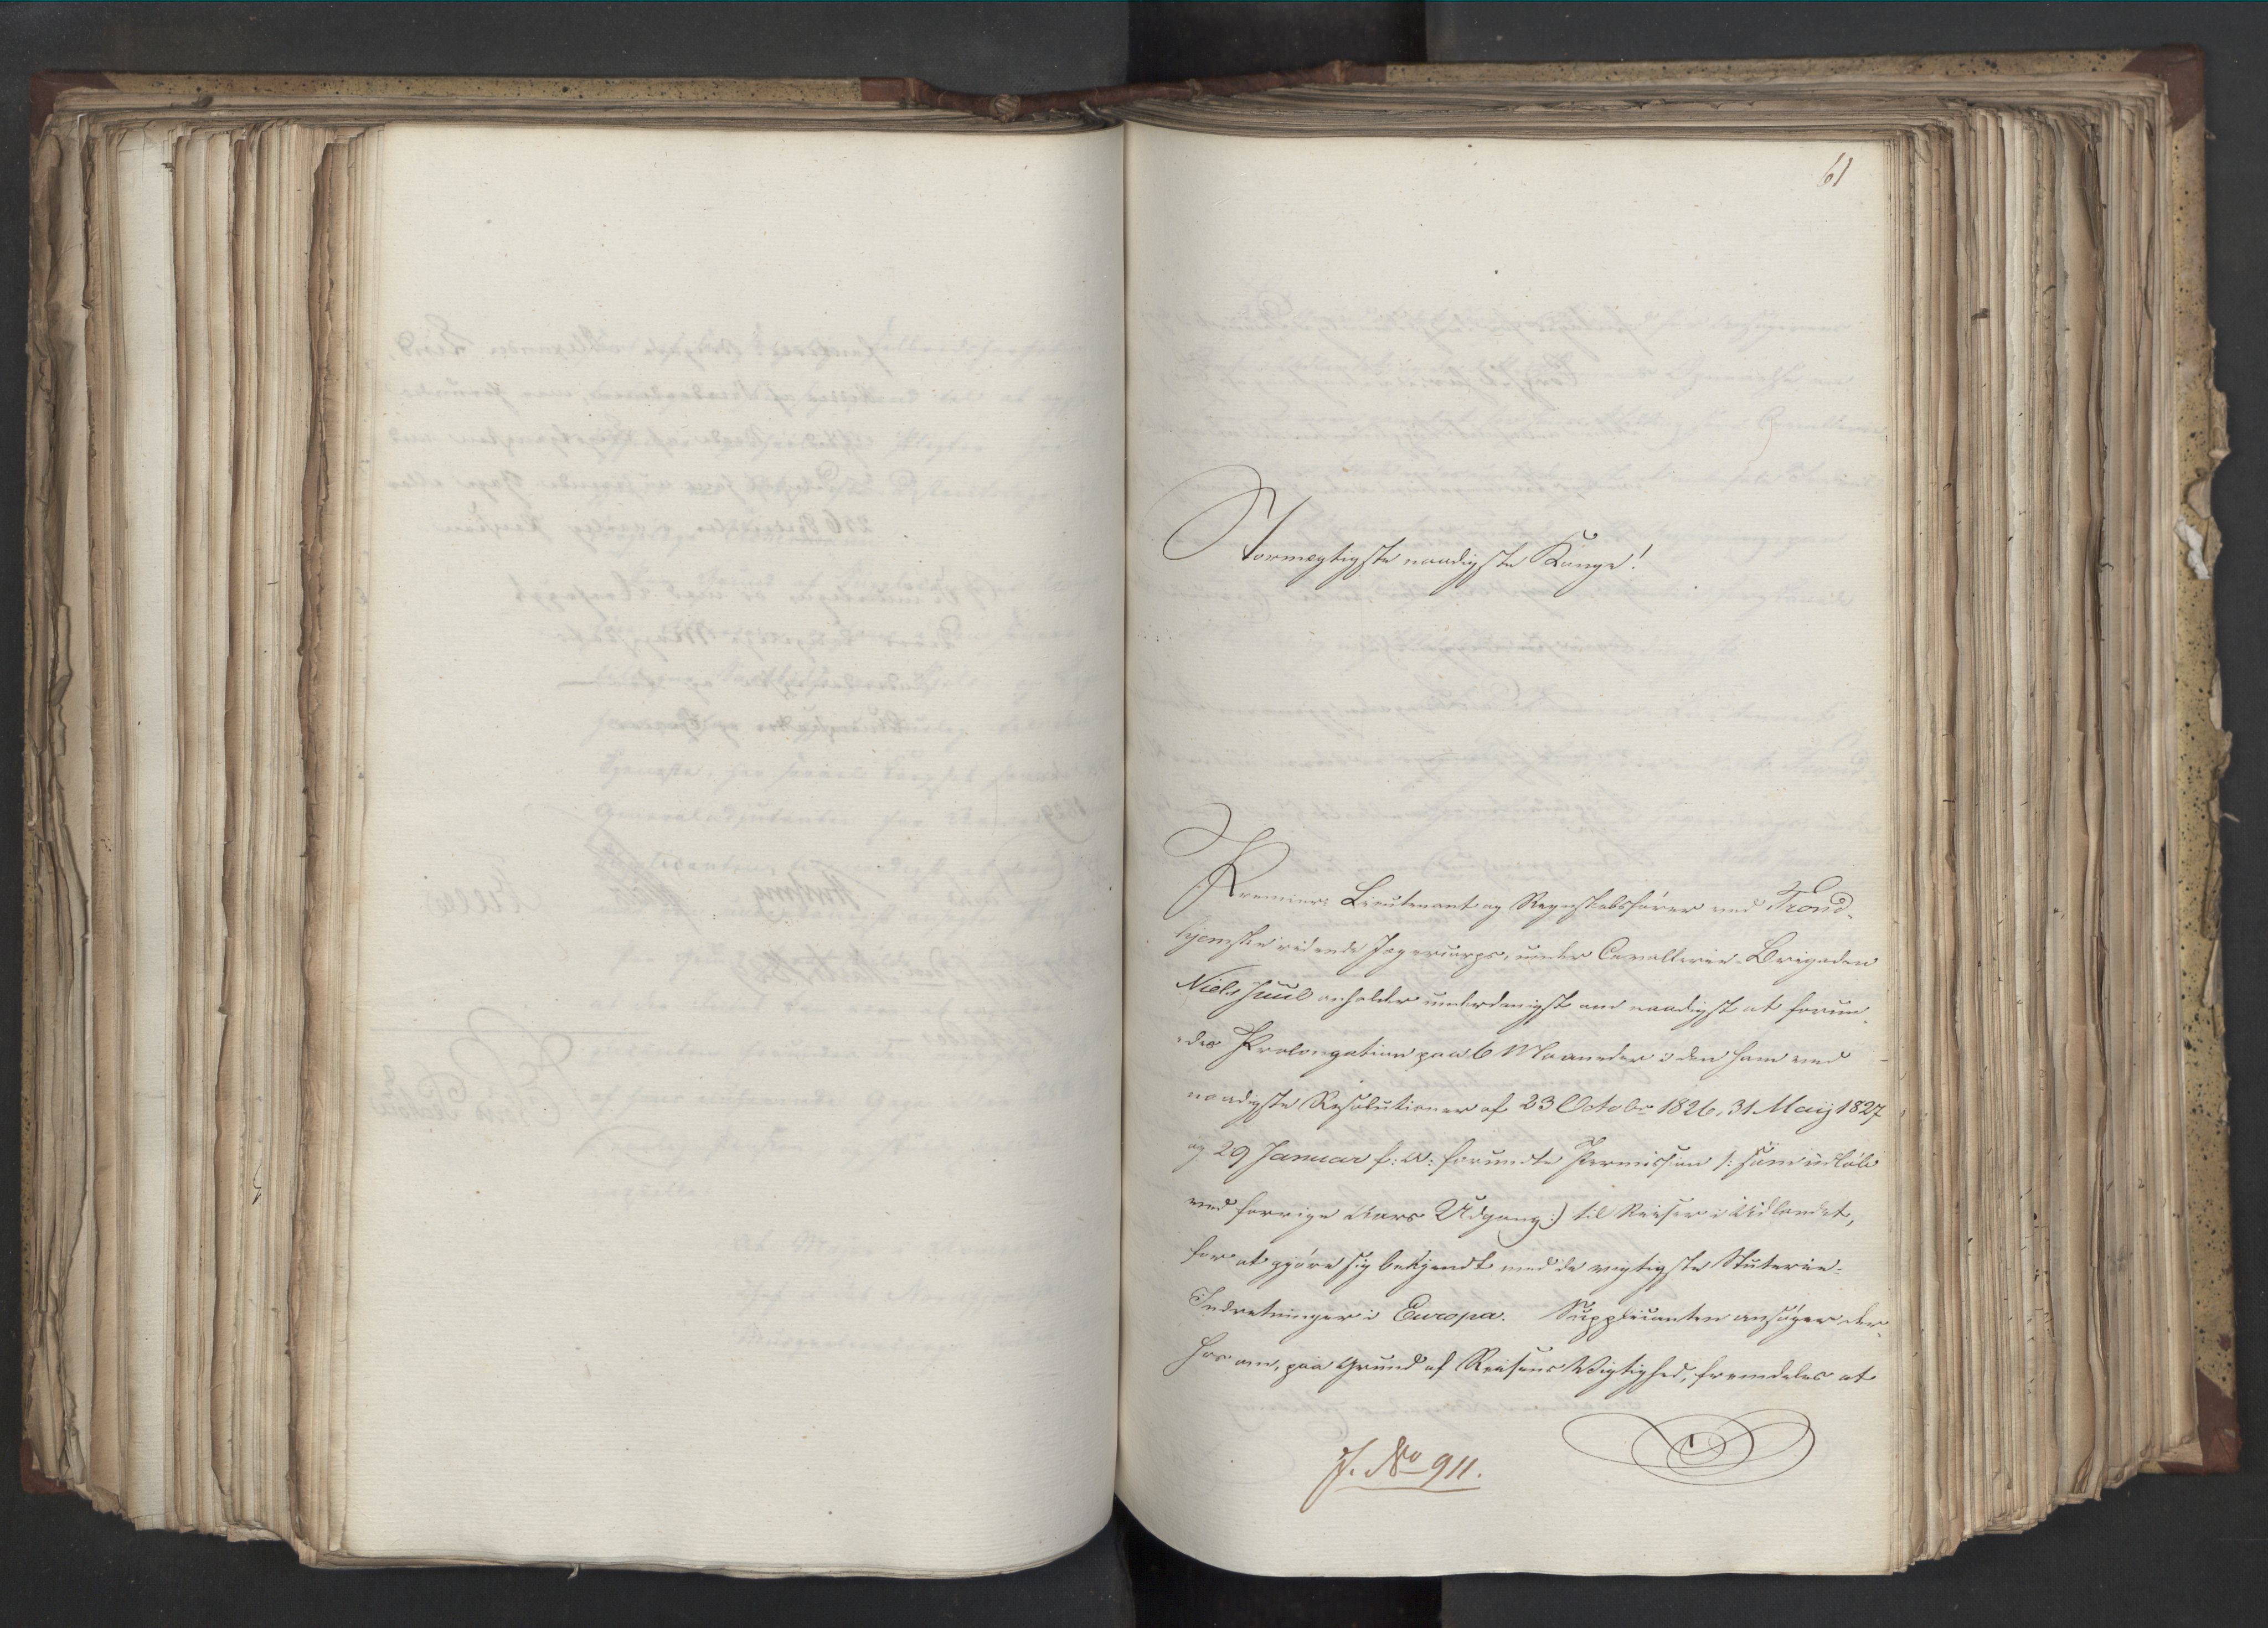 61
Stormægtigste naadigste Konge!
Premier-Lieutenant og Regnskabsfører ved Trond-
hjemske ridende Jægercorps, under Cavallerie-Brigaden
Niels Juul anholder underdanigst om naadigst at forun-
des Prolongation paa 6 Maaneder i den ham ved
naadigste Resolutioner af 23 Octobr 1826, 31 Maij 1827
og 29 Januar f: A: forundte Permission /: som udløb
ved forrige Aars Udgang :/ til Reiser i Udlandet,
for at gjøre sig bekjendt med de vigtigste Stuterie-
Indretninger i Europa. Supplicanten ansøger der-
hos om, paa Grund af Reisens Vigtighed, fremdeles at
J. No 911.